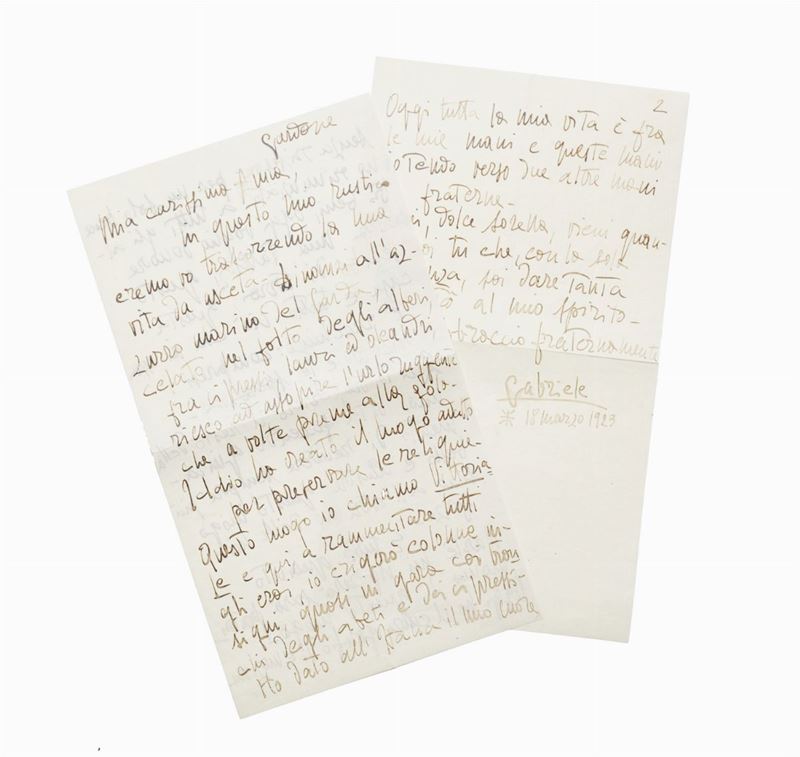 Gardone
Mia carissima
in questo mio rustico
eremo vo trascorrendo la mia
vita da asceta. Dinanzi all'az-
zurro marino del Garda,
celata nel folto degli alberi,
fra cipressi, lauri ed oleandri,
riesco ad assopire l'urlo ruggente
che a volte preme alla gola.
Iddio ha creato il luogo adatto
per preservare le reliquie.
Questo luogo io chiamo Vittoria
le e qui a rammentare tutti
gli eroi io erigerò colonne in-
signi, quasi in gara coi tron-
chi degli abeti e dei cipressi.
Ho dato all'Italia il mio cuore
2
Oggi tutta la mia vita è fra
le mie mani e queste mani
tendo verso due altre mani
fraterne.
dolce sorella, vieni quan-
tu che, con la sola
nza, sai dare tanta
tà al mio spirito.
abbraccio fraternamente
Gabriele
* 18 marzo 1923